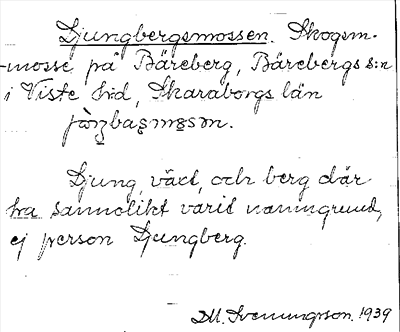 Djungbergsmossen. Skogsm-
mosse på Bäreberg, Bärebergs s:n
i Viste hd, Skaraborgs län
Djung, växt, och berg där
tra sannolikt varit namngrund,
ej person Djungberg.
D.M. Svenungsson. 1939